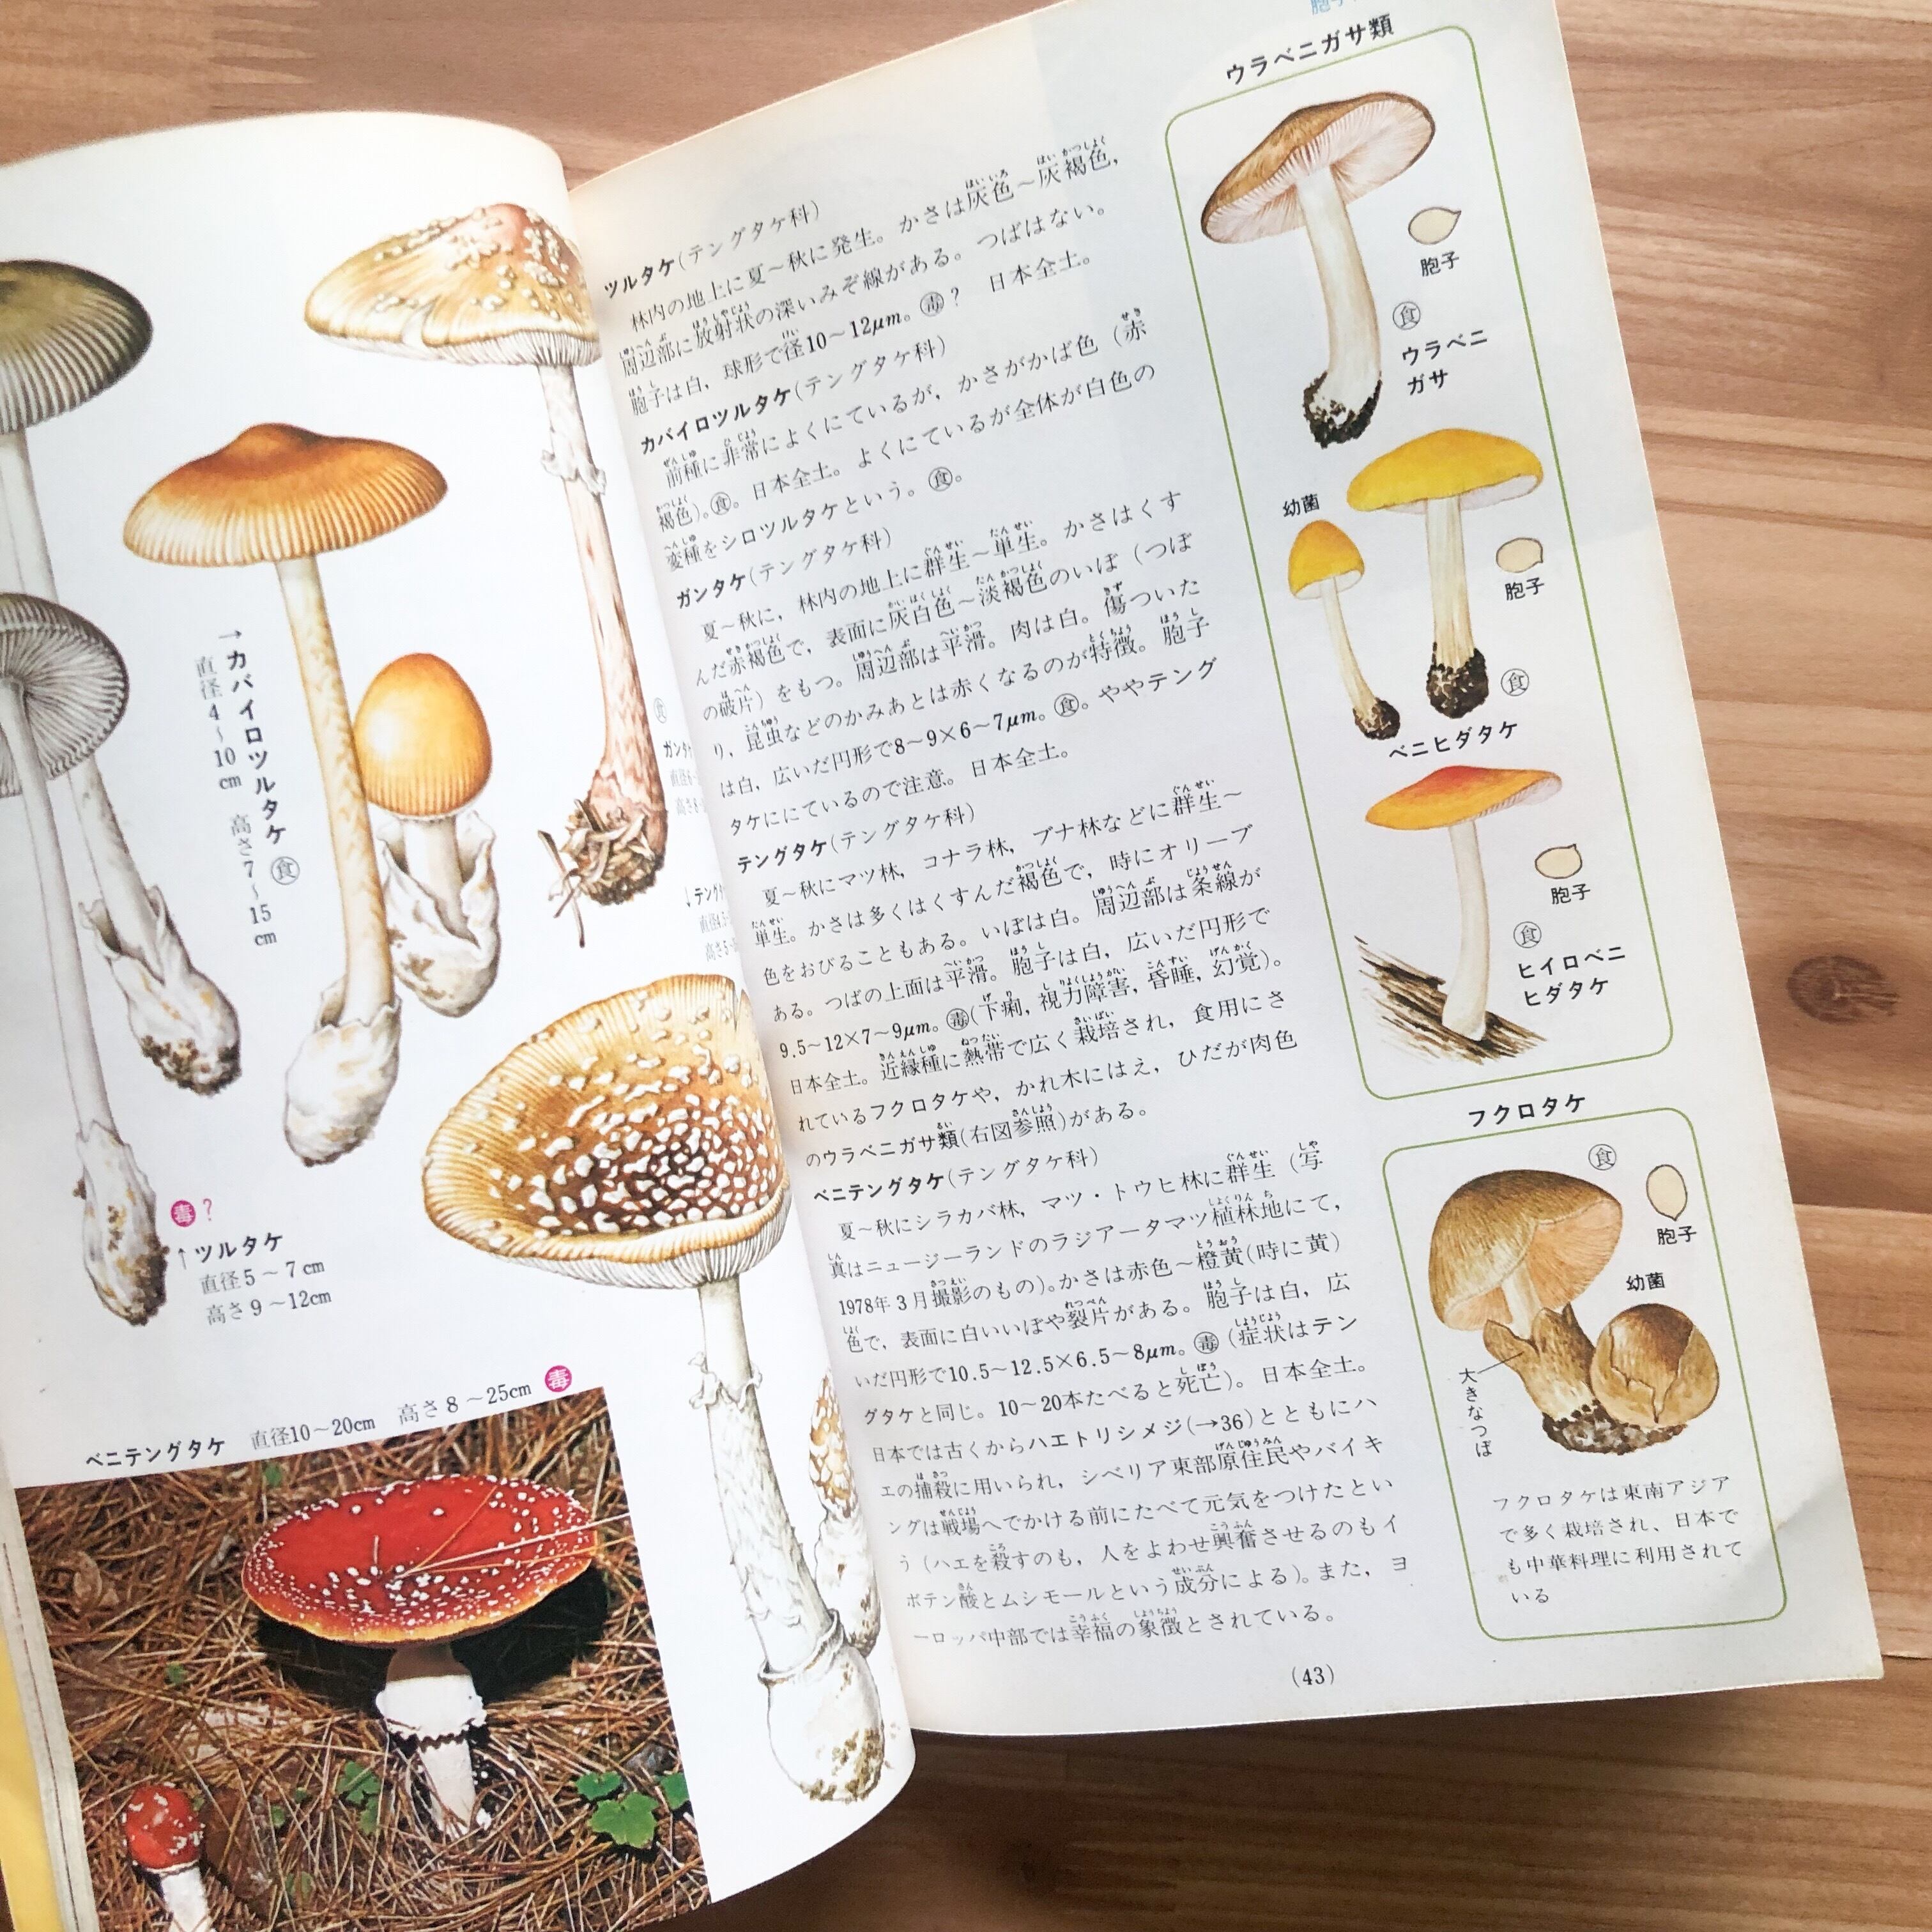 →カバイロツルタケ 食
直径4～10cm 高さ7～15cm
食
毒?
↑ツルタケ
直径5～7cm
高さ9～12cm
ベニテングタケ 直径10～20cm 高さ8～25cm 毒
ツルタケ(テングタケ科)
林内の地上に夏～秋に発生。かさは灰色～灰褐色,
周辺部に放射状の深いみぞ線がある。つばはない。
胞子は白,球形で径10～12μm。毒? 日本全土。
カバイロツルタケ(テングタケ科)
前種に非常によくにているが,かさがかば色(赤
褐色)。食。日本全土。よくにているが全体が白色の
変種をシロツルタケという。食。
ガンタケ(テングタケ科)
夏～秋に,林内の地上に群生～単生。かさはくす
んだ赤褐色で,表面に灰白色～淡褐色のいぼ(つぼ
の破片)をもつ。周辺部は平滑。肉は白。傷ついた
り,昆虫などのかみあとは赤くなるのが特徴。胞子
は白,広いだ円形で8～9×6～7μm。食。ややテング
タケににているので注意。日本全土。
テングタケ(テングタケ科)
夏～秋にマツ林,コナラ林,ブナ林などに群生～
単生。かさは多くはくすんだ褐色で,時にオリーブ
色をおびることもある。いぼは白。周辺部は条線が
ある。つばの上面は平滑。胞子は白,広いだ円形で
9.5～12×7～9μm。毒(下痢,視力障害,昏睡,幻覚)。
日本全土。近縁種に熱帯で広く栽培され,食用にさ
れているフクロタケや,かれ木にはえ,ひだが肉色
のウラベニガサ類(右図参照)がある。
ベニテングタケ(テングタケ科)
夏～秋にシラカバ林,マツ・トウヒ林に群生(写
真はニュージーランドのラジアータマツ植林地にて,
1978年3月撮影のもの)。かさは赤色～橙黄(時に黄)
色で,表面に白いいぼや裂片がある。胞子は白,広
いだ円形で10.5～12.5×6.5～8μm。毒(症状はテン
グタケと同じ。10～20本たべると死亡)。日本全土。
日本では古くからハエトリシメジ(→36)とともにハ
エの捕殺に用いられ,シベリア東部原住民やバイキ
ングは戦場へでかける前にたべて元気をつけたとい
う(ハエを殺すのも,人をよわせ興奮させるのもイ
ボテン酸とムシモールという成分による)。また,ヨ
ーロッパ中部では幸福の象徴とされている。
(43)
ウラベニガサ類
胞子
食
ウラベニ
ガサ
幼菌
胞子
食
ベニヒダタケ
胞子
食
ヒイロベニ
ヒダタケ
フクロタケ
食
胞子
幼菌
大きなつぼ
フクロタケは東南アジア
で多く栽培され、日本で
も中華料理に利用されて
いる